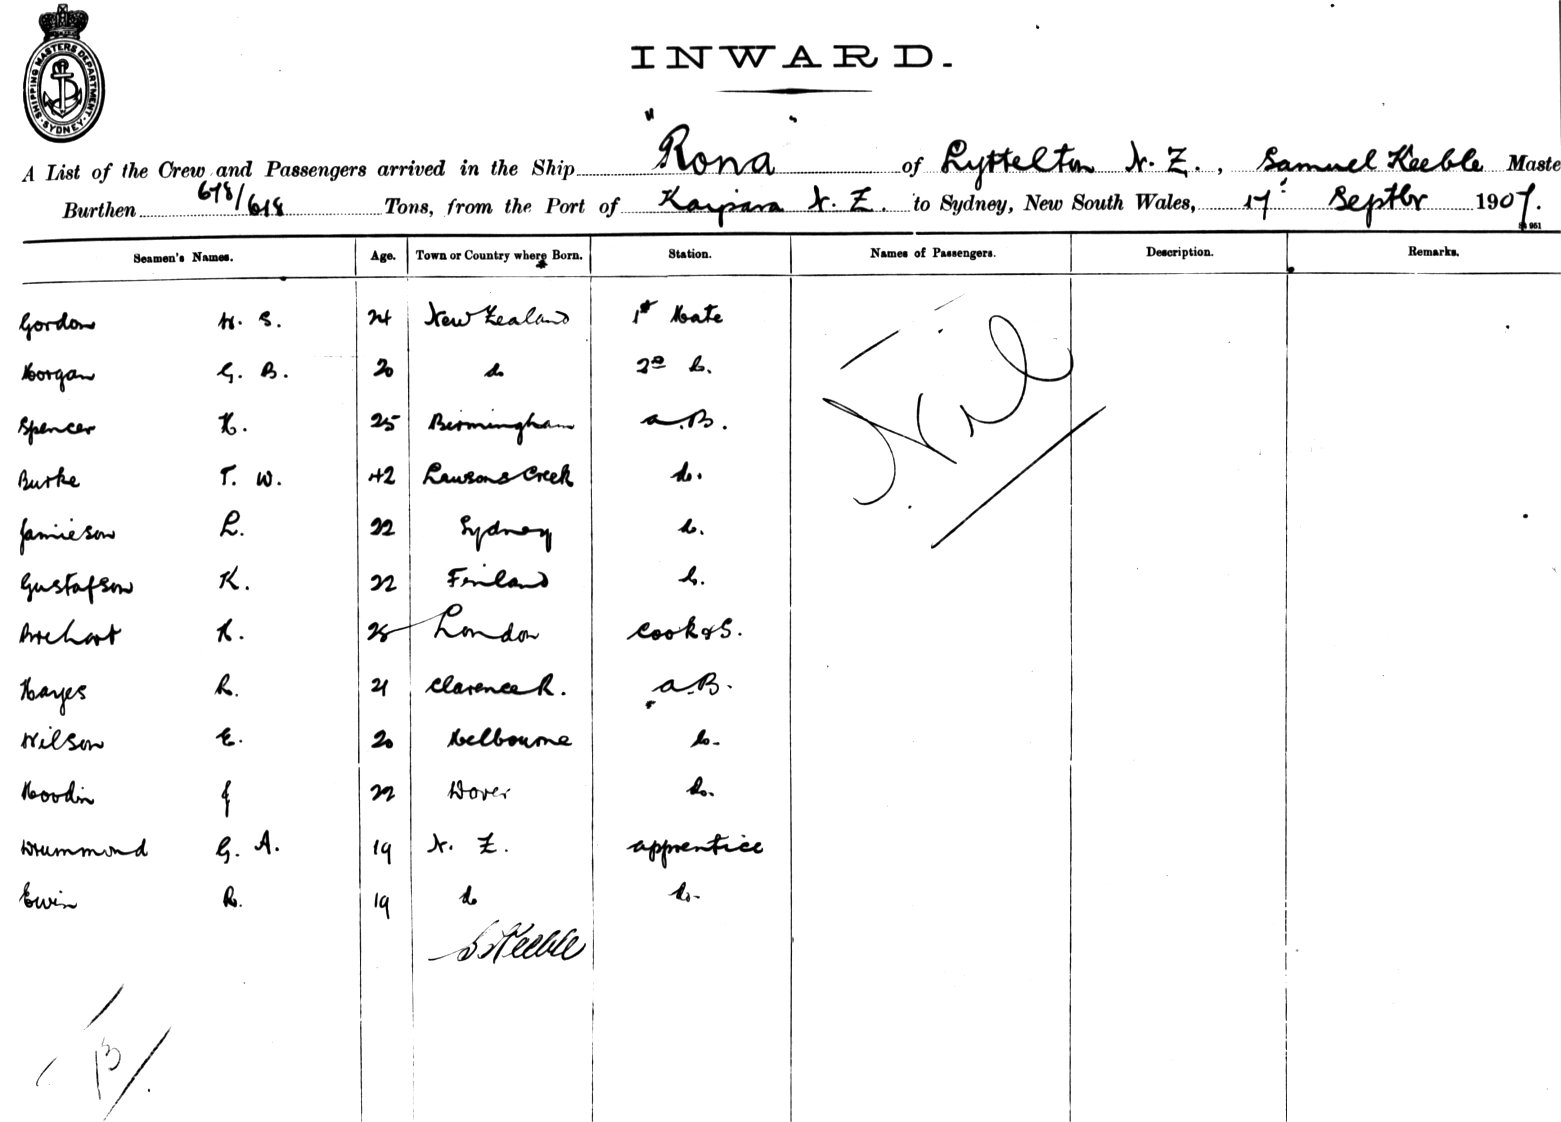 SHIPPING MASTERS DEPARTMENT. SYDNEY.
INWARD.
A List of the Crew and Passengers arrived in the Ship "Rona" of Lyttelton N. Z., Samuel Keeble Maste
Burthen 678/618 Tons, from the Port of Kaipara N. Z. to Sydney, New South Wales, 17 Septbr 1907.
Seamen's Names. Age. Town or Country where Born. Station. Names of Passengers. Description. Remarks.
Gordon H. S. 24 New Zealand 1st Mate
Nil
Morgan G. B. 20 do 2nd do.
Spencer H. 25 Birmingham a.B.
Burke T. W. 42 Lawsons Creek do.
Jamieson L. 22 Sydney do.
Gustafson K. 22 Finland do.
H. 25 London Cook & S.
Hayes R. 21 Clarence R. a.B.
Wilson E. 20 Melbourne do.
J 22 Dover do.
Drummond G. A. 19 N. Z. apprentice
Ewin R. 19 do do.
S Keeble
13